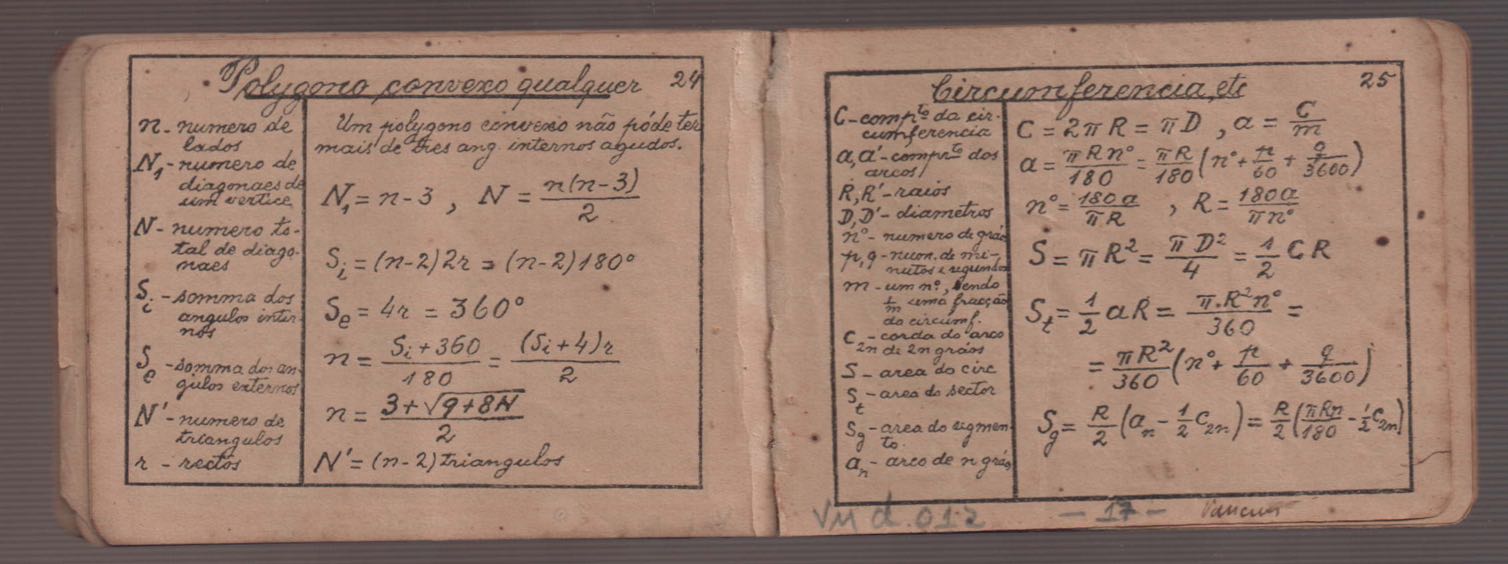 Polygono convexo qualquer 24
n - numero de
lados
N₁ - numero de
diagonaes de
um vertice
N - numero to-
tal de diago-
naes
Sᵢ - somma dos
angulos inter-
nos
Sₑ - somma dos an-
gulos externos
N' - numero de
triangulos
r - rectos
Um polygono convexo não póde ter
mais de tres ang. internos agudos.
N₁ = n-3 , N = n(n-3)/2
Sᵢ = (n-2)2r = (n-2)180°
Sₑ = 4r = 360°
n = (Sᵢ+360)/180 = (Sᵢ+4)r/2
n = (3+√(9+8N))/2
N' = (n-2) triangulos
Circumferencia, etc 25
C - comp.to da cir-
cumferencia
a, a' - compr.to dos
arcos
R, R' - raios
D, D' - diametros
n° - numero de gráos
p, q - num. de mi-
nutos e segundos
m - um nº, sendo
1/m uma fracção
da circumf.
C₂ₙ - corda do arco
de 2n gráos
S - area do circ
Sₜ - area do sector
S_g - area do segmen-
to.
aₙ - arco de n gráos
C = 2πR = πD , a = C/m
a = πRn°/180 = πR/180 (n° + p/60 + q/3600)
n° = 180a/πR , R = 180a/πn°
S = πR² = πD²/4 = 1/2 CR
Sₜ = 1/2 aR = π.R²n°/360 =
= πR²/360 (n° + p/60 + q/3600)
S_g = R/2 (aₙ - 1/2 c₂ₙ) = R/2 (πRn/180 - 1/2 c₂ₙ)
d. 012 - 17 -